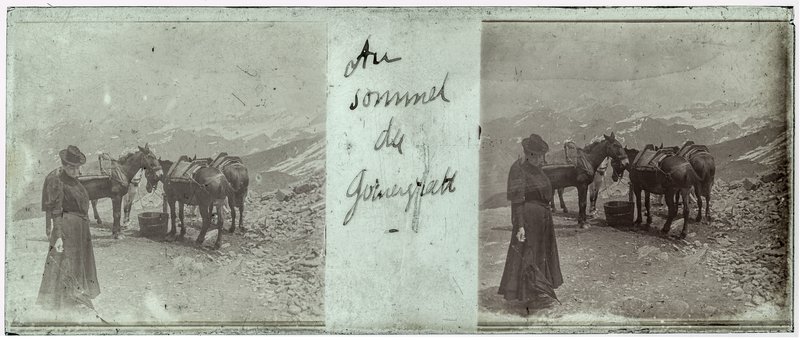 Au
sommet
du
Gornergratt